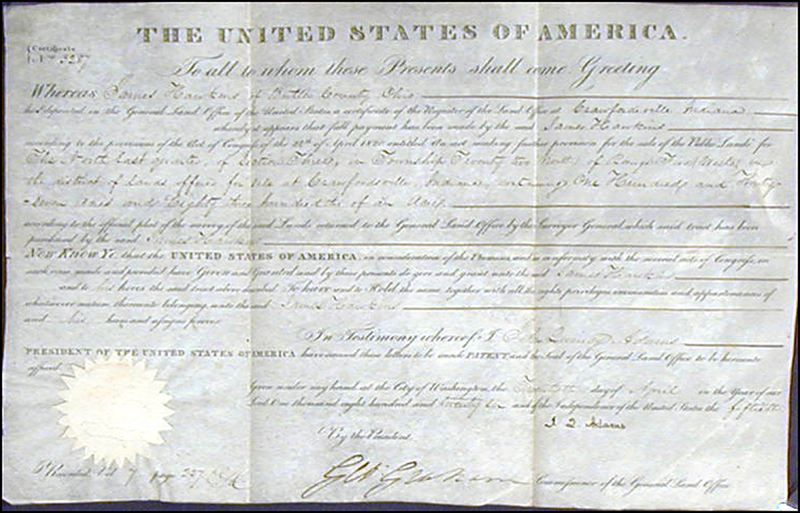 THE UNITED STATES OF AMERICA.
Certificate
No. 3287
To all to whom these Presents shall come, Greeting
Whereas James Hawkins of Butler County Ohio
has deposited in the General Land Office of the United States a certificate of the Register of the Land Office at Crawfordsville Indiana
whereby it appears that full payment has been made by the said James Hawkins
according to the provisions of the Act of Congress of the 24th of April 1820 entitled An act making further provision for the sale of the Public Lands for
The North East quarter, of Section Three, in Township Twenty two North, of Range Two West, in
the district of lands offered for sale at Crawfordsville, Indiana, containing One Hundred and Forty
Seven acres and Eighty three hundredths of an Acre
according to the official plat of the survey of the said Lands returned to the General Land Office by the Surveyor General, which said tract has been
purchased by the said James Hawkins
NOW KNOW YE that the UNITED STATES OF AMERICA, in consideration of the Premises, and in conformity with the several acts of Congress, in
such case made and provided have Given and Granted and by these presents do give and grant unto the said James Hawkins
and to his heirs the said tract above described To have and to Hold the same together with all the rights privileges immunities and appurtenances of
whatsoever nature thereunto belonging, unto the said James Hawkins
and his heirs and assigns forever
In Testimony whereof I John Quincy Adams
PRESIDENT OF THE UNITED STATES OF AMERICA have caused these letters to be made PATENT and the Seal of the General Land Office to be hereunto
affixed.
Given under my hand, at the City of Washington, the day of April in the Year of our
Lord One thousand eight hundred and twenty six and of the Independence of the United States the fiftieth
J. Q. Adams
By the President.
Recorded Vol 7 page 227
Geo Graham Commissioner of the General Land Office